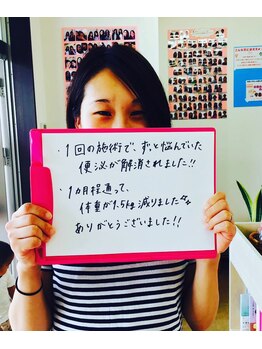 ・1回の施術で、ずっと悩んでいた
便泌が解消されました!!
・1カ月程通って、
体重が1.5kg減りました
ありがとうございました!!